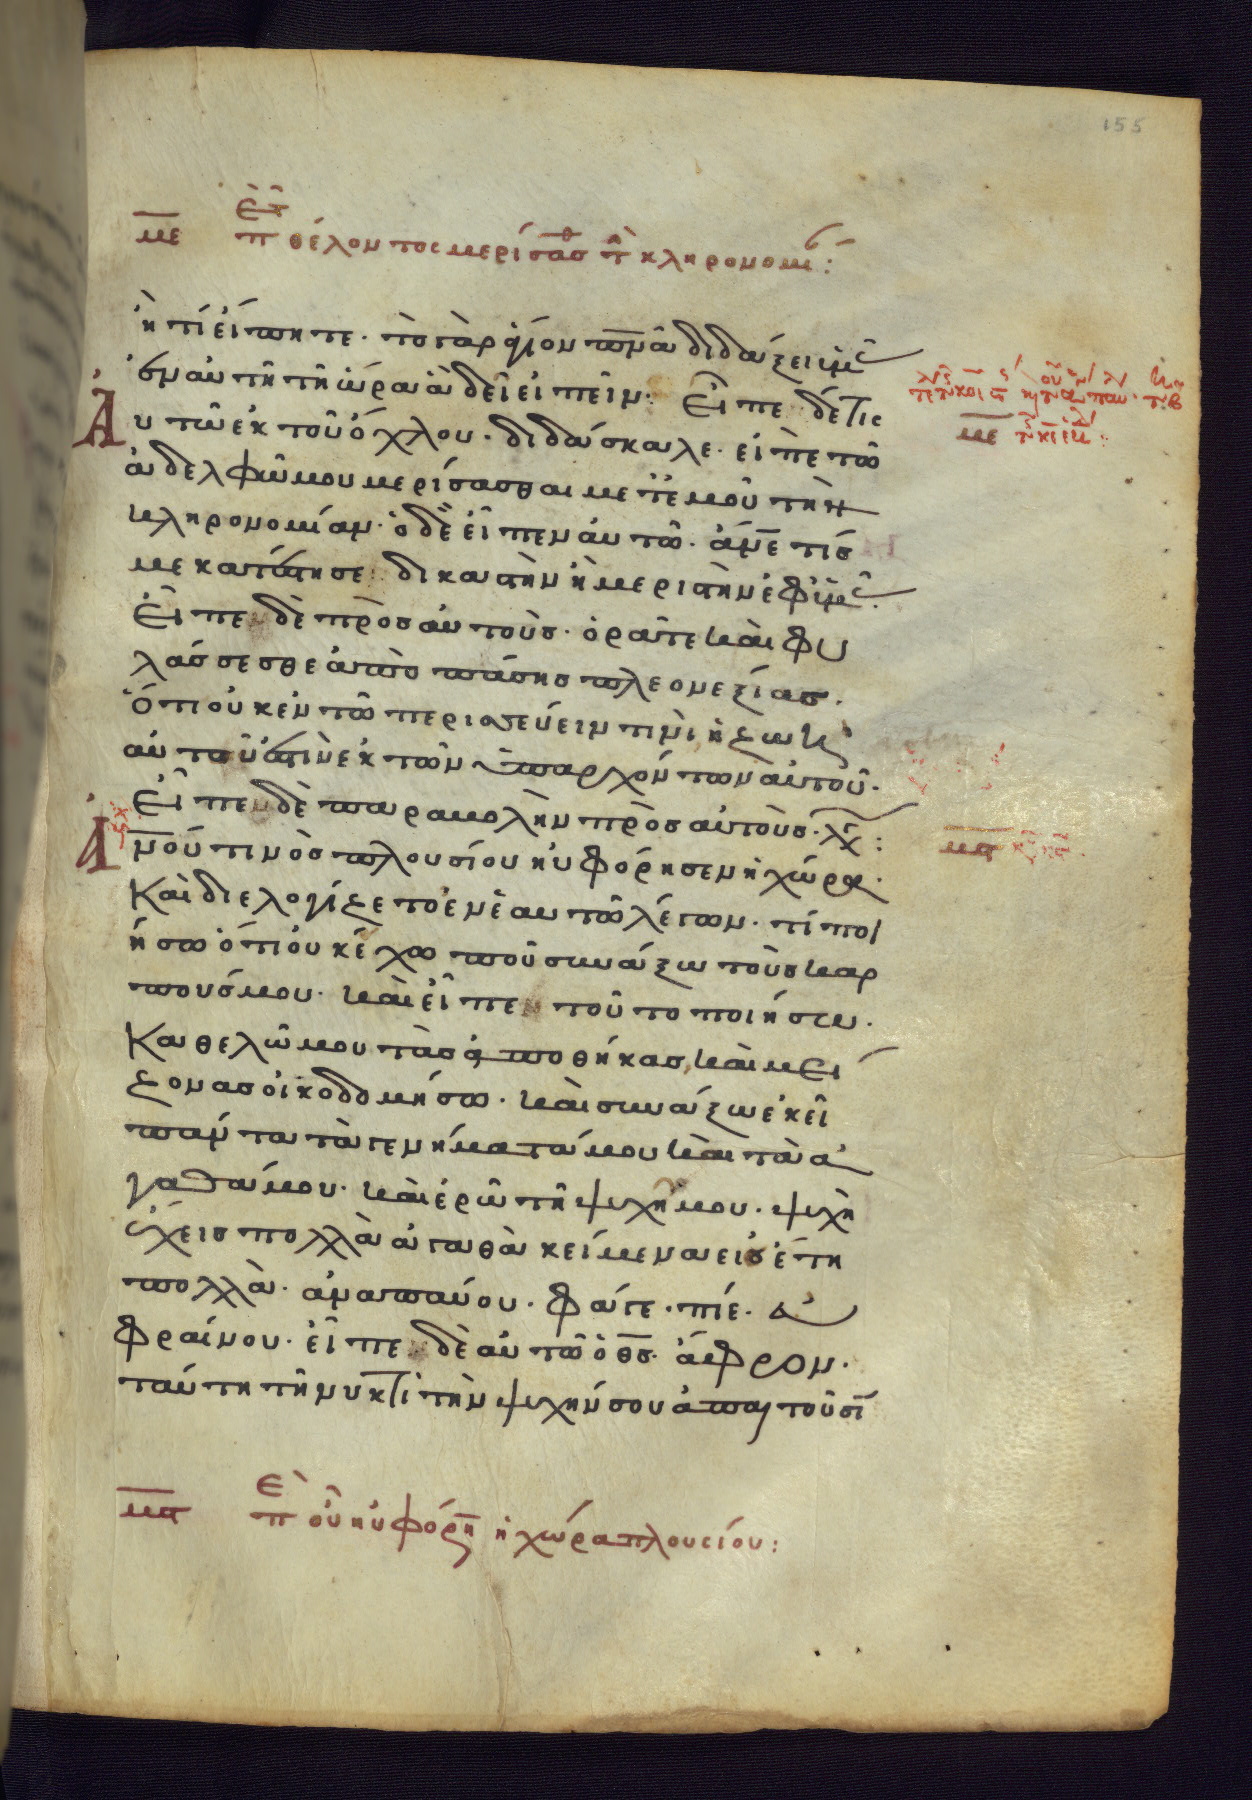 155
με περὶ τοῦ θέλοντος μερίσασθ τὴν κληρονομί:
ἢ τί εἴπητε· τὸ γὰρ ἅγιον πνᾶ διδάξει ὑμᾶς
ἐν αὐτῆ τῆ ὥρα ἃ δεῖ εἰπεῖν: Εἶπε δέ τις
αυτῶ ἐκ τοῦ ὄχλου· διδάσκαλε· εἰπὲ τῶ
ἀδελφῶ μου μερίσασθαι μετ' ἐμοῦ τὴν
κληρονομίαν· ὁ δὲ εἶπεν αὐτῶ· ἄνε τίς
με κατέστησε δικαστὴν ἢ μεριστὴν ἐφ' ὑμᾶς·
Εἶπε δὲ πρὸς αὐτοὺς· ὁρᾶτε καὶ φυ
λάσσεσθε ἀπὸ πάσης πλεονεξίας·
Ὅτι οὐκ ἐν τῶ περισσεύειν τινὶ ἡ ζωὴ
αὐτοῦ ἐστὶν ἐκ τῶν ὑπαρχόντων αὐτοῦ·
Εἶπε δὲ παραβολὴν πρὸς αὐτοὺς· λέγ:
ἀνού τινὸς πλουσίου ηὐφόρησεν ἡ χώρα·
Καὶ διελογίζετο ἐν ἑαυτῶ λέγων· τί ποι
ήσω ὅτι οὐκ ἔχω ποῦ συνάξω τοὺς καρ
πούς μου· καὶ εἶπε τοῦτο ποιήσω·
Καθελῶ μου τὰς ἀποθήκας, καὶ μεί
ζονας οἰκοδομήσω· καὶ συνάξω ἐκεῖ
πάντα τὰ γενήματά μου καὶ τὰ ἀ
γαθά μου· καὶ ἐρῶ τῆ ψυχῆ μου· ψυχὴ
ἔχεις πολλὰ ἀγαθὰ κείμενα εἰς ἔτη
πολλὰ· ἀναπαύου· φάγε· πίε· εὐ
φραίνου· εἶπε δὲ αὐτῶ ὁ θς· ἄφρον·
ταύτη τῆ νυκτὶ τὴν ψυχήν σου ἀπαιτοῦσι
με
μς
μς περὶ οὗ ηὐφόρη ἡ χώρα πλουσίου: